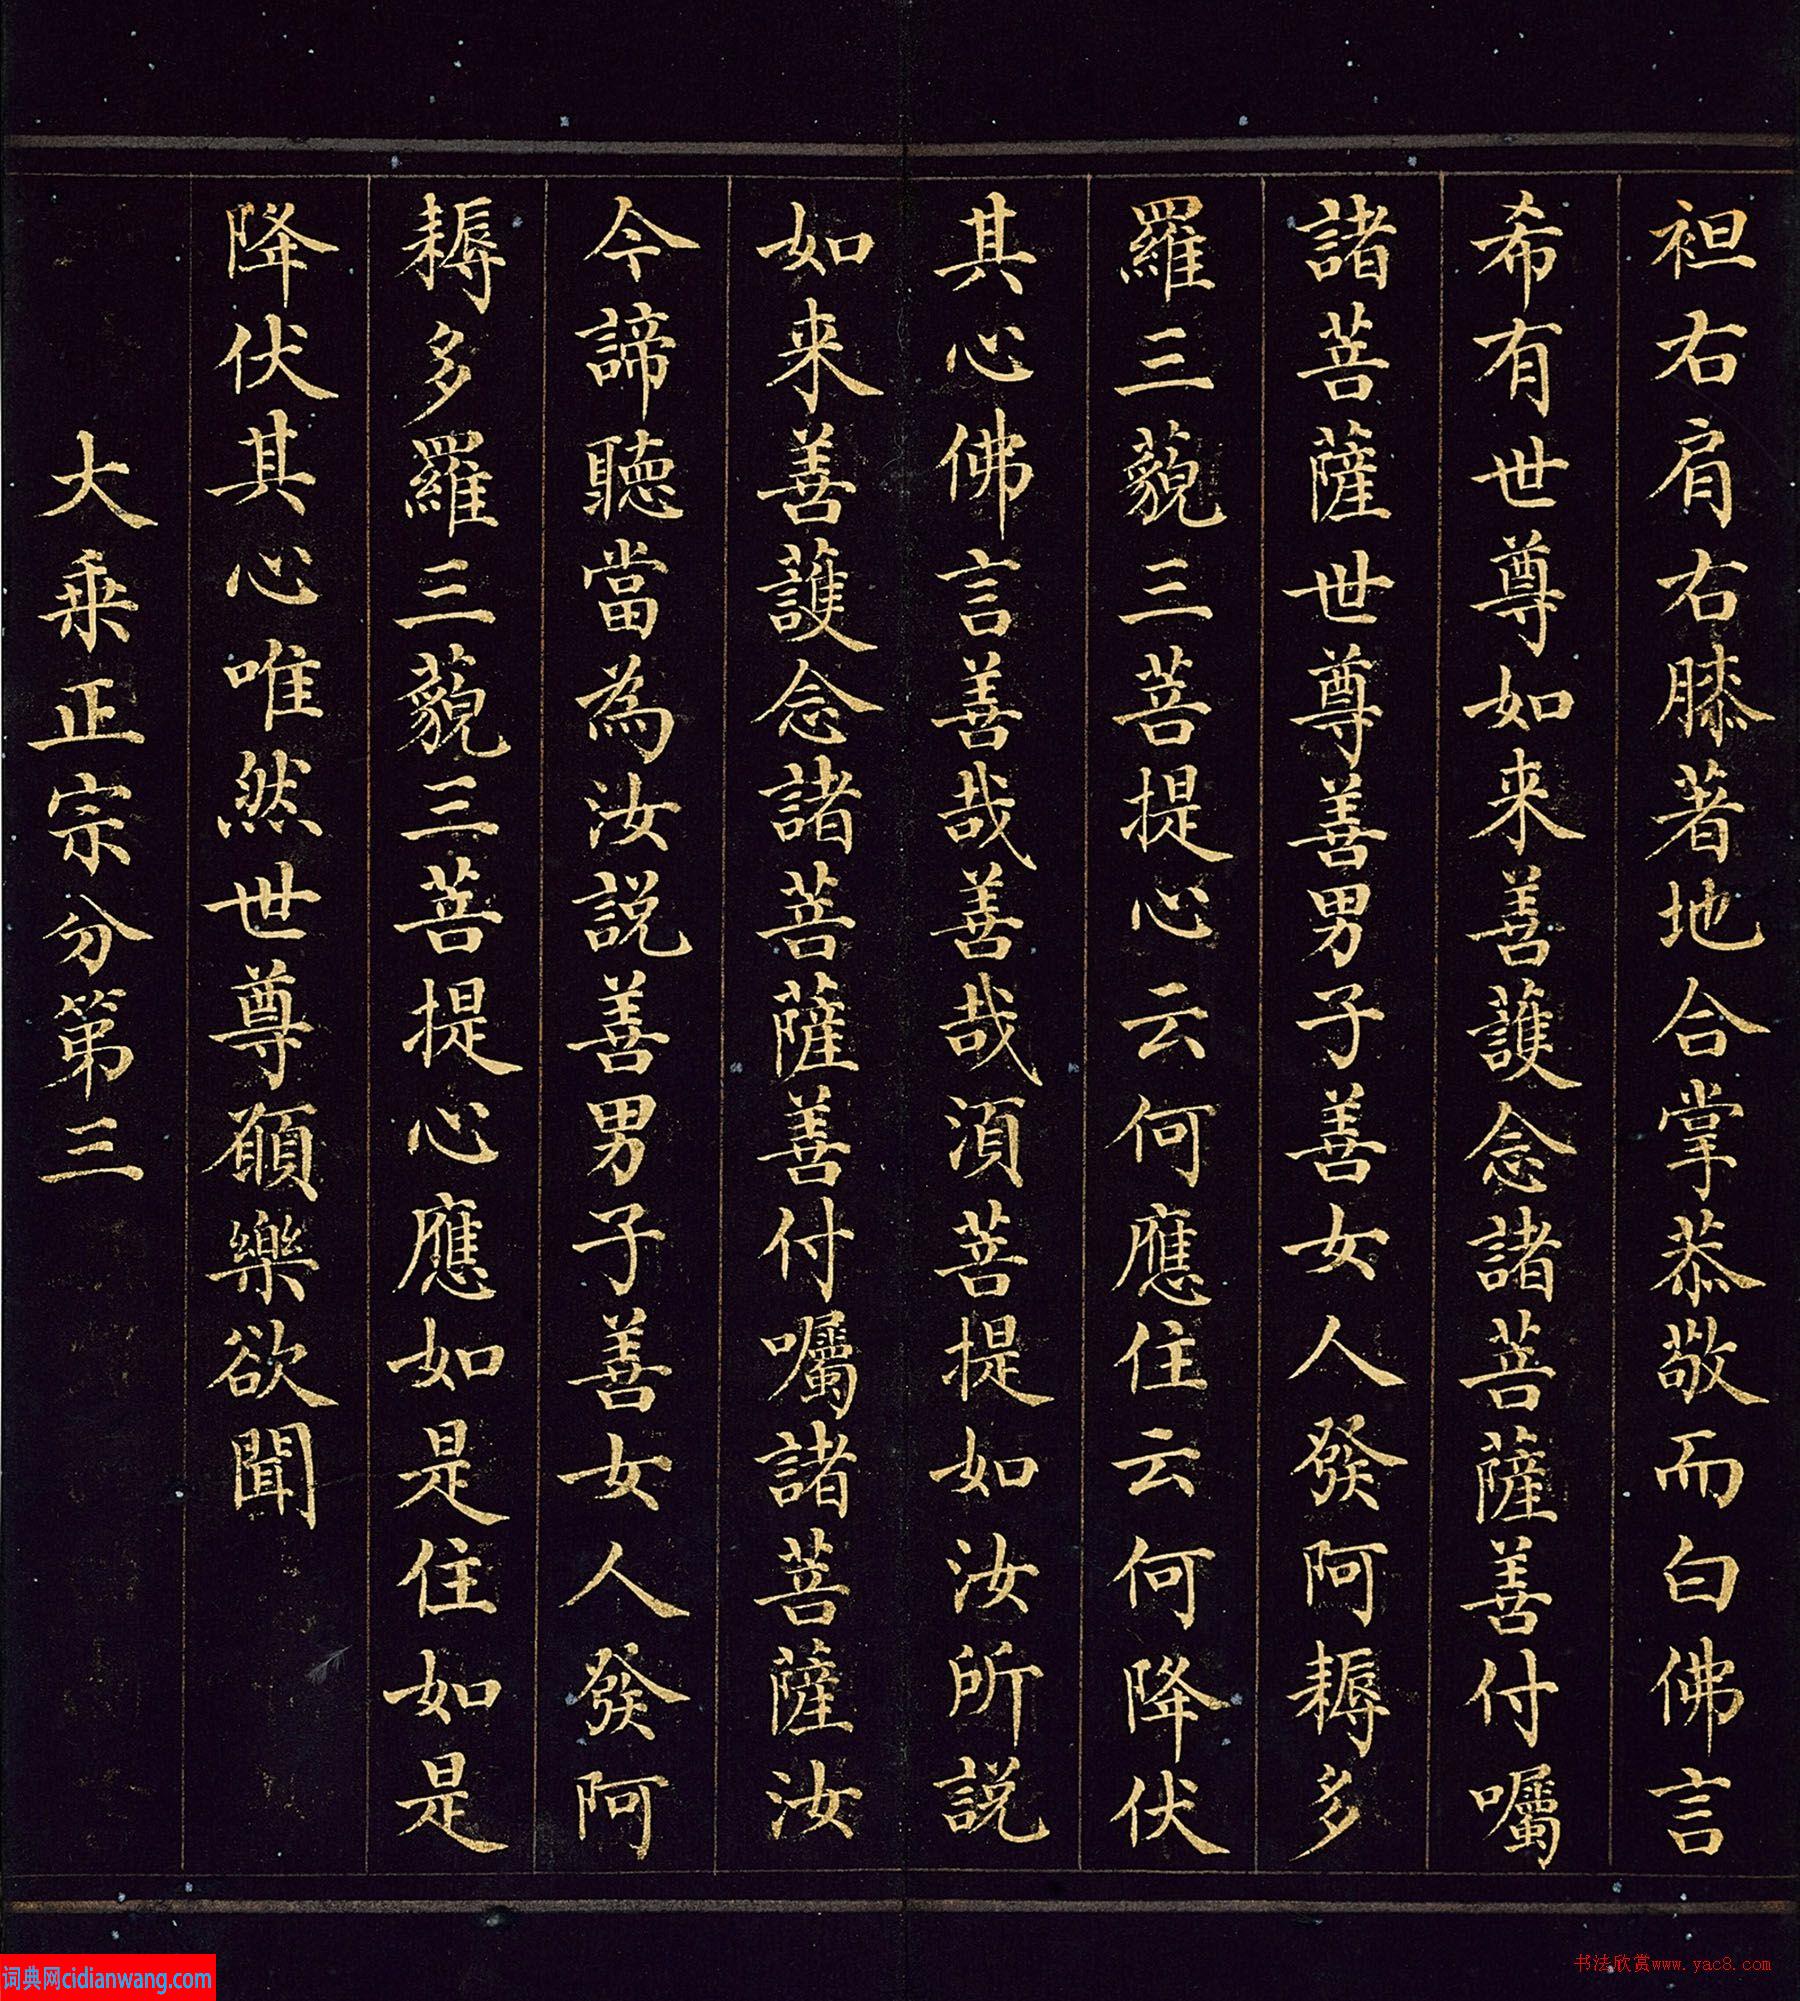 袒右肩右膝著地合掌恭敬而白佛言
希有世尊如来善護念諸菩薩善付囑
諸菩薩世尊善男子善女人發阿耨多
羅三藐三菩提心云何應住云何降伏
其心佛言善哉善哉湏菩提如汝所説
如来善護念諸菩薩善付囑諸菩薩汝
今諦聽當為汝説善男子善女人發阿
耨多羅三藐三菩提心應如是住如是
降伏其心唯然世尊願樂欲聞
大乗正宗分第三
词典网cidianwang.com
书法欣赏www.yac8.com